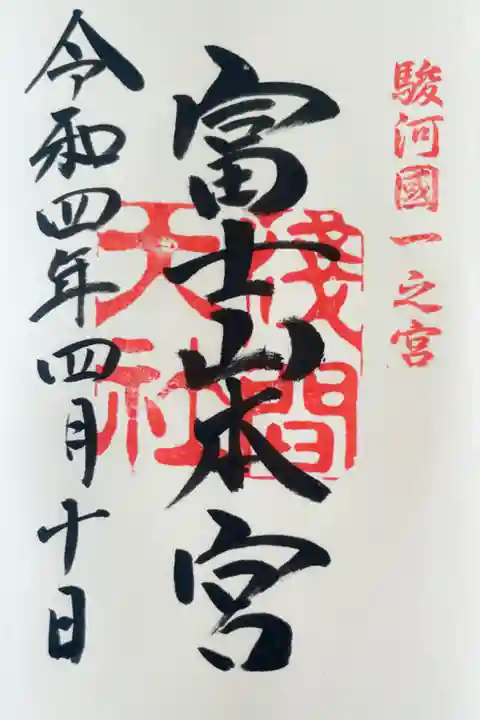 駿河國一之宮
富士山本宮
浅間
大社
令和四年四月十日